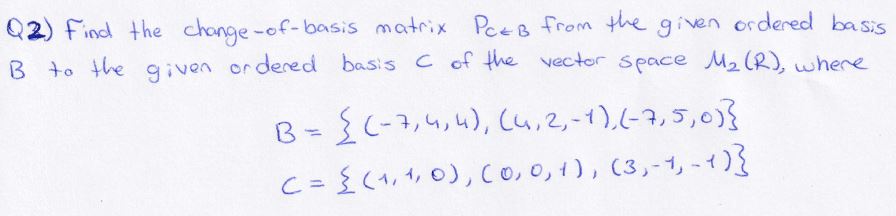 Q2) Find the change-of-basis matrix P_C←B from the given ordered basis
B to the given ordered basis C of the vector space M₂(R), where
B = { (-7,4,4), (4,2,-1), (-7,5,0)}
C = { (1,1,0), (0,0,1), (3,-1,-1)}